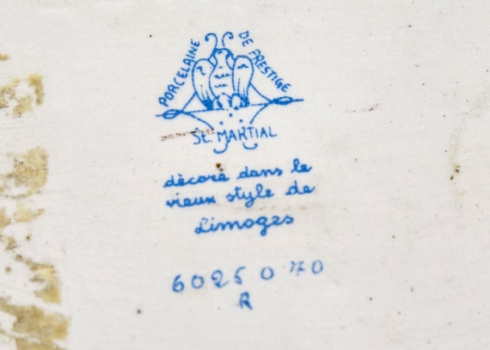 PORCELAINE DE PRESTIGE
St. MARTIAL
décoré dans le
vieux style de
Limoges
6025 0 70
R